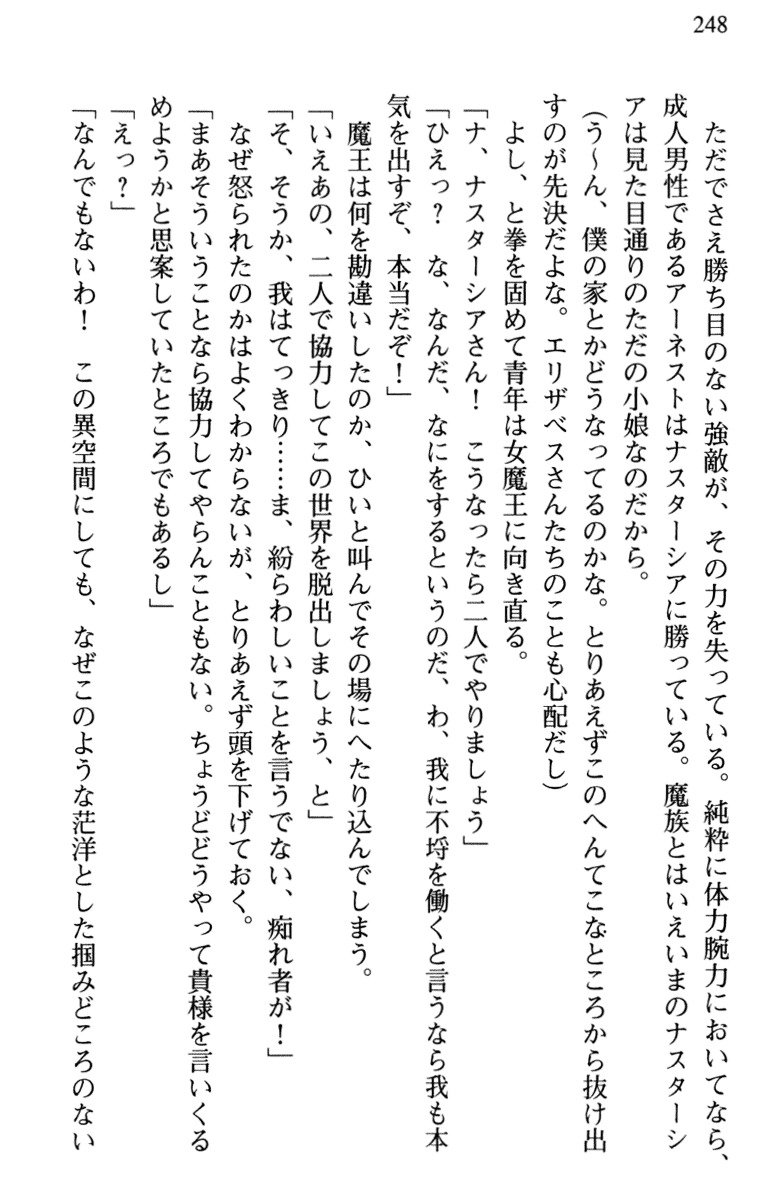 248
　ただでさえ勝ち目のない強敵が、その力を失っている。純粋に体力腕力においてなら、
成人男性であるアーネストはナスターシアに勝っている。魔族とはいえいまのナスターシ
アは見た目通りのただの小娘なのだから。
(う～ん、僕の家とかどうなってるのかな。とりあえずこのへんてこなところから抜け出
すのが先決だよな。エリザベスさんたちのことも心配だし)
　よし、と拳を固めて青年は女魔王に向き直る。
「ナ、ナスターシアさん！　こうなったら二人でやりましょう」
「ひえっ？　な、なんだ、なにをするというのだ、わ、我に不埒を働くと言うなら我も本
気を出すぞ、本当だぞ！」
　魔王は何を勘違いしたのか、ひいと叫んでその場にへたり込んでしまう。
「いえあの、二人で協力してこの世界を脱出しましょう、と」
「そ、そうか、我はてっきり……ま、紛らわしいことを言うでない、痴れ者が！」
　なぜ怒られたのかはよくわからないが、とりあえず頭を下げておく。
「まあそういうことなら協力してやらんこともない。ちょうどどうやって貴様を言いくる
めようかと思案していたところでもあるし」
「えっ？」
「なんでもないわ！　この異空間にしても、なぜこのような茫洋とした掴みどころのない